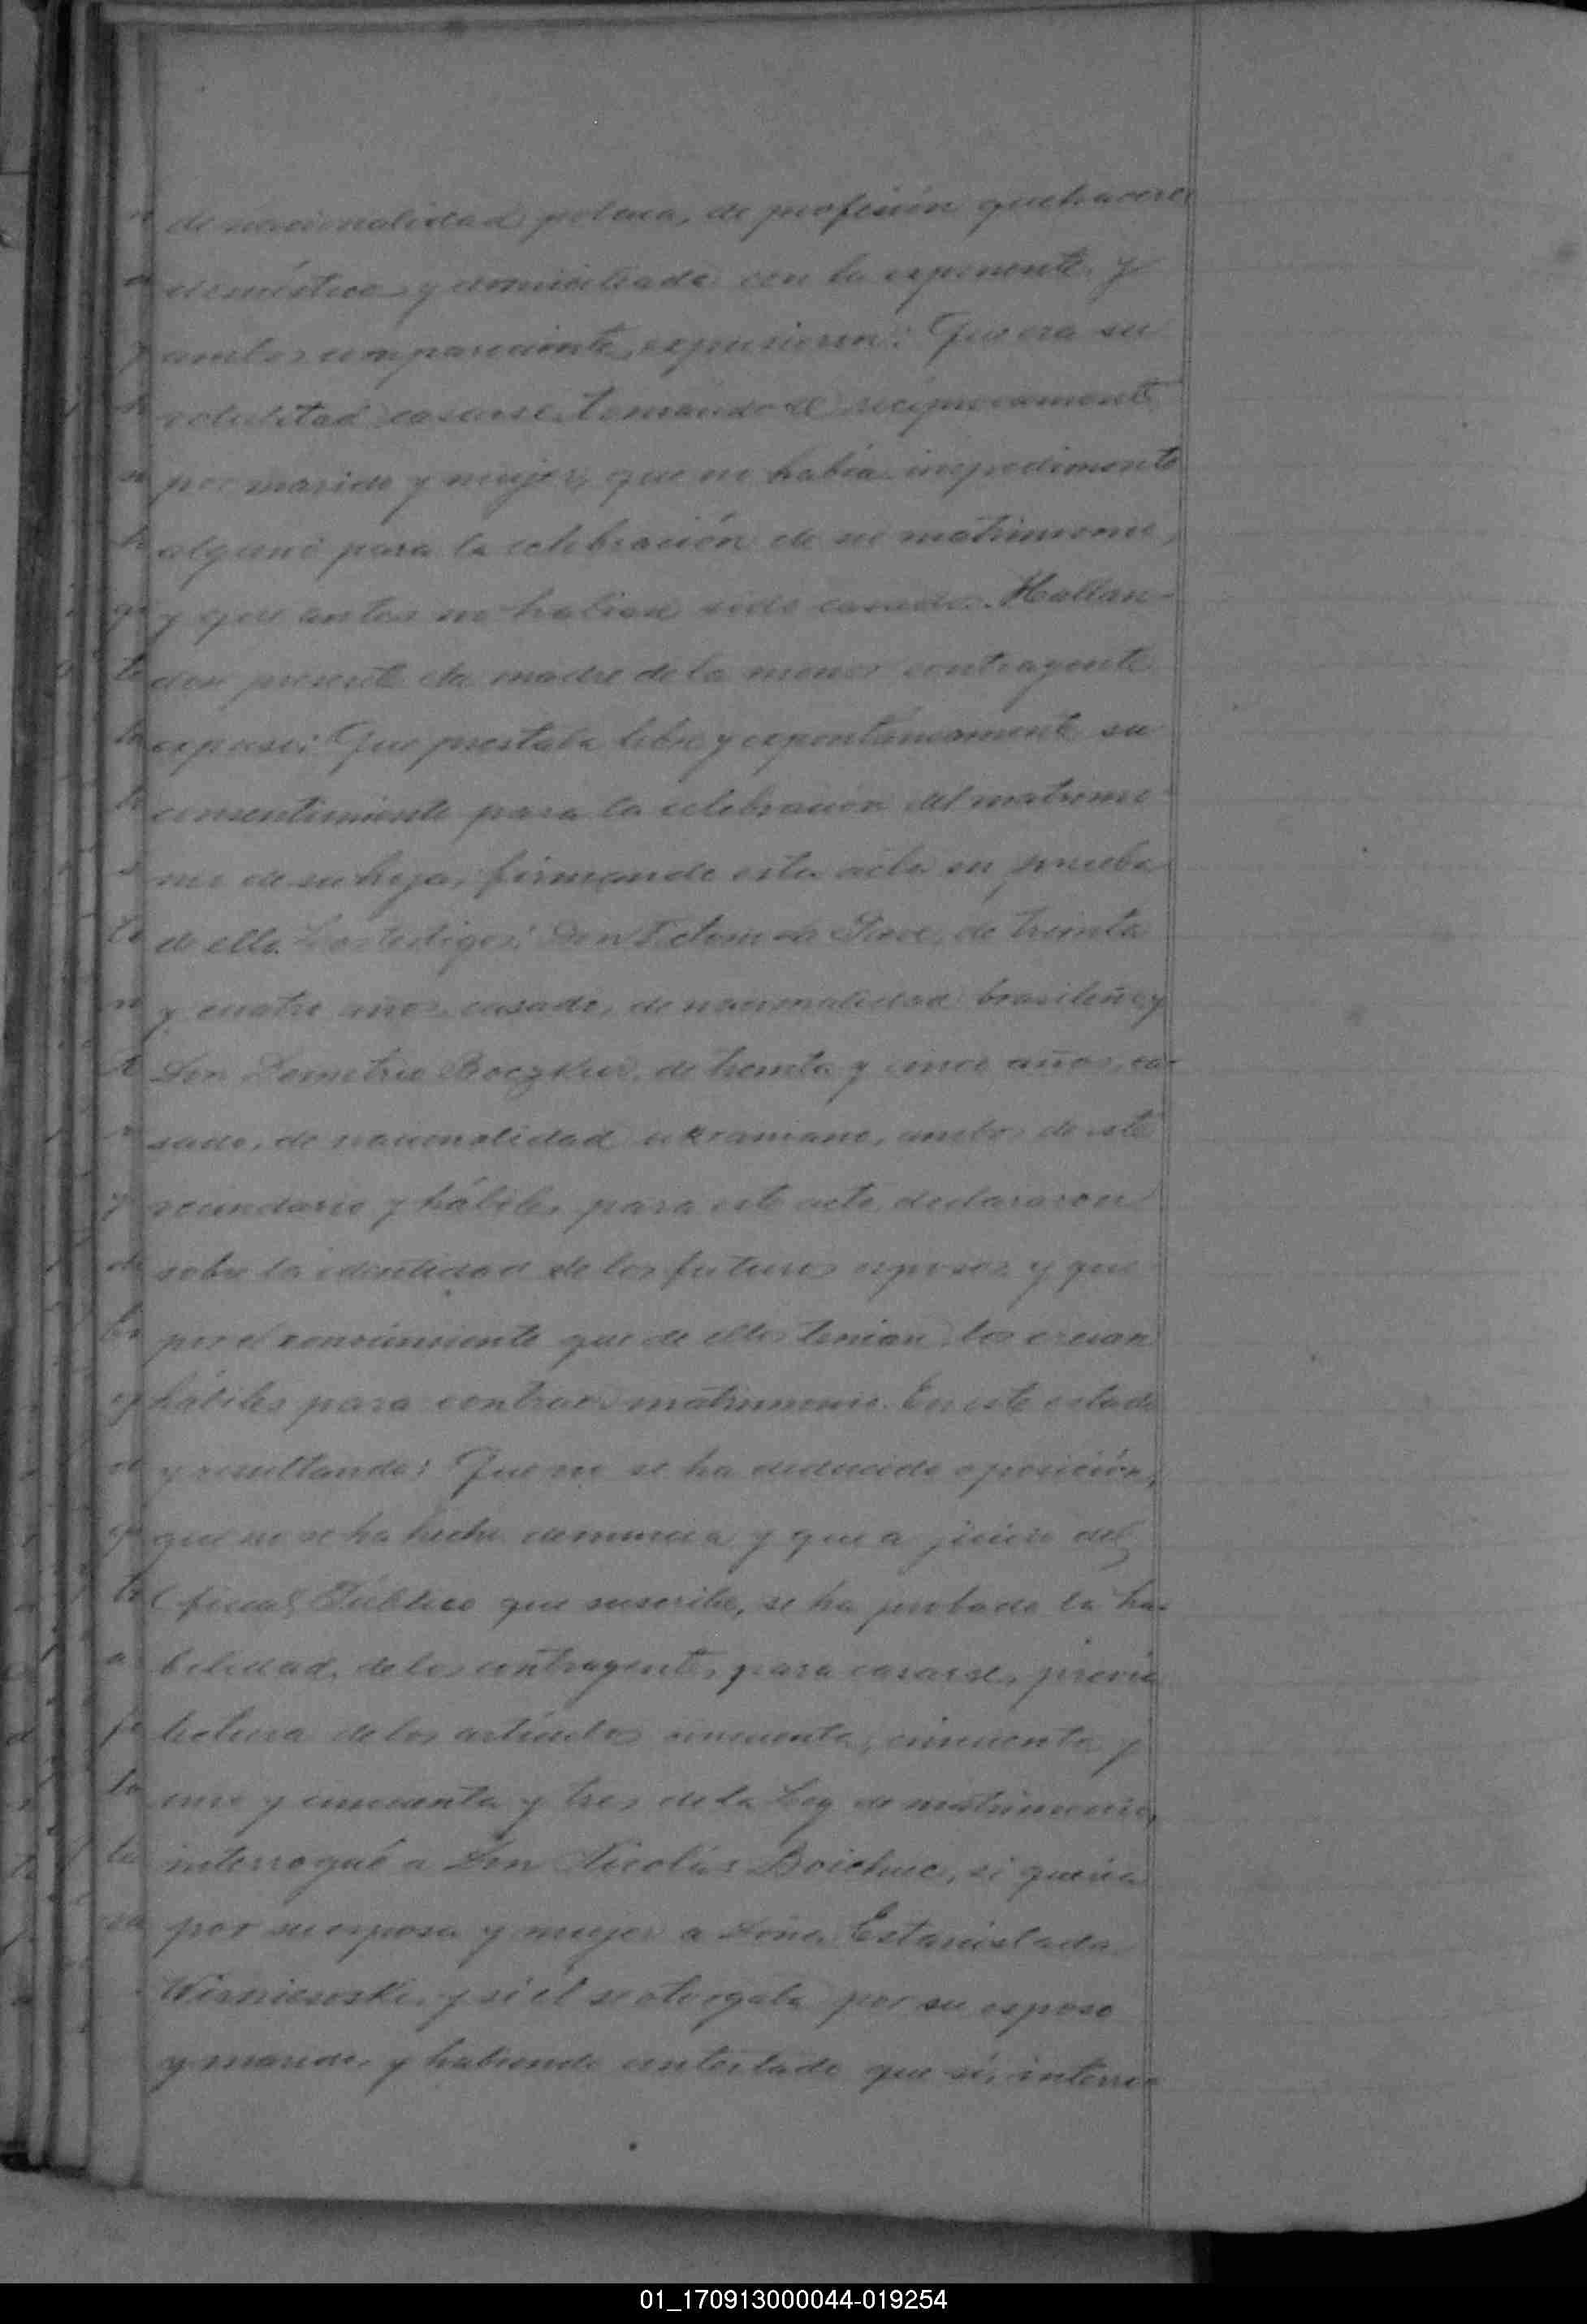 de nacionalidad polaca, de profesión quehaceres
domésticos y domiciliada con la exponente. Y
ambos comparecientes, expusieron: Que era su
voluntad casarse tomandose recíprocamente
por marido y mujer, que no había impedimento
alguno para la celebración de su matrimonio,
y que antes no habian sido casados. Hallan-
dose presente la madre de la menor contrayente
expuso: Que prestaba libre y expontáneamente su
consentimiento para la celebración del matrimo-
nio de su hija, firmando esta acta en prueba
de ello. Los testigos: Don de treinta
y cuatro años, casado, de nacionalidad brasileño y
Don Demetrio Boczkur, de treinta y cinco años, ca-
sado, de nacionalidad ukraniano, ambos de este
vecindario y hábiles para este acto, declararon
sobre la identidad de los futuros esposos y que
por el conocimiento que de ellos tenian, los creian
hábiles para contraer matrimonio. En este estado
y resultando: Que no se ha deducido oposición,
que no se ha hecho denuncia y que a juicio del
Oficial Público que suscribe, se ha probado la ha-
bilidad de los contrayentes, para casarse, previa
lectura de los artículos cincuenta, cincuenta y
uno y cincuenta y tres de la Ley de matrimonio,
interrogué a Don Nicolás Boichuc, si quería
por su esposa y mujer a Doña Estanislada
Wisniewski, y si él se otorgaba por su esposo
y marido, y habiendo contestado que sí, interro-
01_170913000044-019254